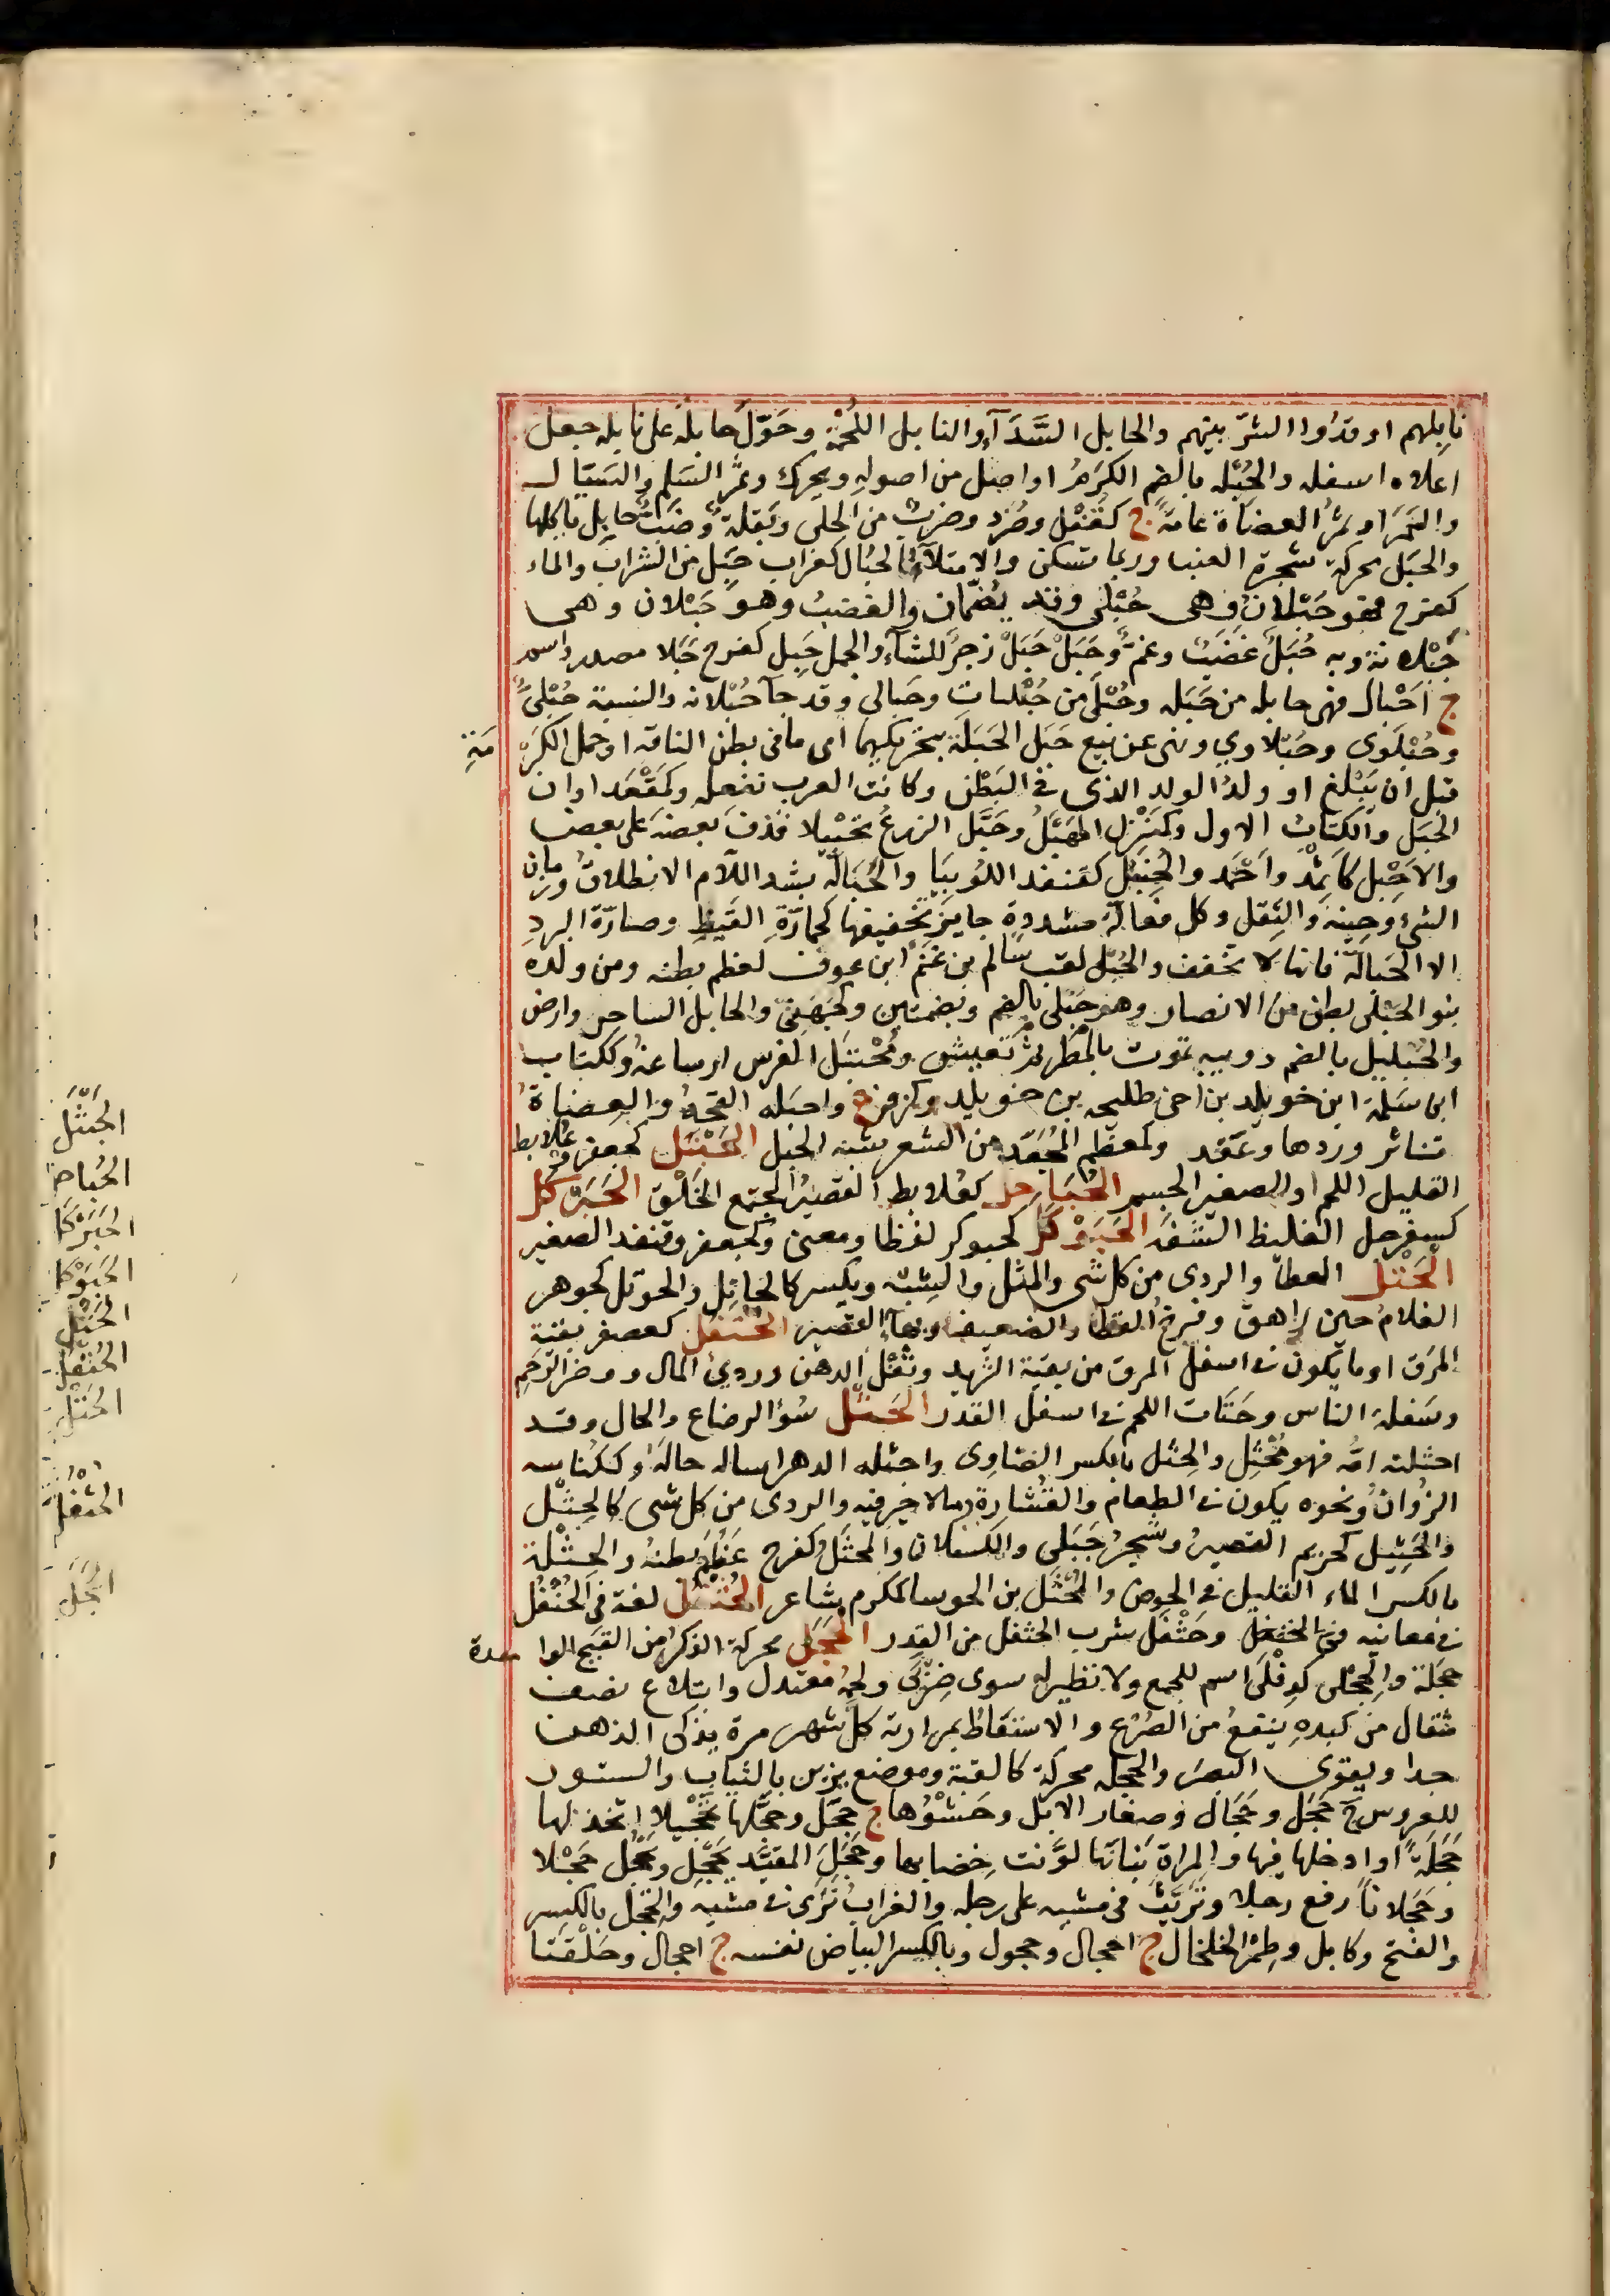 نابلهم اوقدوا الشرّ بينهم والحابل السَّدَآء والنابل اللُحْمَة وحَوّلَ حابلَه على نابله جعل
اعلاه اسفله والحُبْله بالضم الكَرَمُ او اصل من اصوله ويحرك وثمَر السَلَم والسَيَال
والسَمَر او ثمَرُ العضاة عامّةً ج كقُفْل وصُرَد وضربٌ من الحلى وبَقلَةٌ وضَبٌ حابل ياكلها
والحَبَل محركة شجرة العنب وربما تسكن والامتلآء كالحُبَال كغراب حَبِل من الشراب والماء
كفرح فهو حَبْلانُ وهى حُبْلى وقد يُضَمّان والغضبُ وهو حَبْلان وهى
حَبْلانة وبه حُبَلٌ غضَبٌ وغمٌ وحَبَلْ حَبَلْ زجرٌ للشآء والجمل حَبِل كفرح حَبَلا مصدر واسم
ج احْبال فهى حابله من حَبَله وحُبْلَى من حُبْليات وحَبالى وقد جآ حُبْلانه والنسبة حُبْلىٌّ
وحُبْلَوى وحُبْلاوي ونهى عن بيع حَبَل الحَبَلَة بتحريكهما اى ما فى بطن الناقة او حمل الكَرْ مَةِ
قبل ان يَبْلُغ او ولدُ الولد الذى فى البَطْن وكانت العرب تفعله وكمَقْعَد اوان
الحَبَل والكتابُ الاول وكمَنْزِل المَهْبَلُ وحَبَّل الزرعُ تحبيلا قذف بعضهَ على بعض
والاَحْبَل كاَثْمِد واَحْمَد والحُنْبُل كقنفذ اللُوبيَا والحَبَالَّه بشد اللّام الانطلاقُ وزمان
الشئ وحينه والثقل وكل فعالّة مشددة جايز تخفيفها كحمارّةِ القَيظِ وصبارّة البردِ
الا الحَبَالّة فانها لا تخفف والحُبْلى لقب سالم بن غَنْم ابن عوف لعظم بطنه ومن ولده
بنو الحُبْلى بطن من الانصار وهو حُبْلى بالضم وبضمتين وكجُهَنىّ والحابل الساحر وارض
والحُبَليل بالضم دويبه تموت بالمطر ثم تعيش ومُحْتَبَل الفرس ارساغه وككتاب
ابن سَلمة ابن خويلد بن اخى طليحه بن خويلد وكزفر ع واحبله القحه والعضاةُ
تناثر وردها وعَقد وكمعظم المُجَعّد من الشعر شبه الحبل الحَبْتَل كجعفر وعُلابط
القليل اللحم او الصغير الجسم الحُبَاجِل كعُلابط القصيرُ المجتمع الخَلْق الحَبَرْكَل
كسفرجل الغليظ الشفَه الحَبَوْكَل كحبوكر لفظا ومعنى وكجعفر وقنفذ الصغير
الحَتْل العطآ والردى من كل شى والمثل والشبه ويكسر كالحاتِل والحوتل كجوهر
الغلامُ حين راهق وفرخُ القطا والضعيف وبهآءٍ القصير الحُتْفُل كعصفر بقية
المرَق او ما يكون فى اسفل المرق من بقية الثريد وثُفْل الدهن وردئ المال ووضر الرَحِم
وسَفلة الناس وحتات اللحم فى اسفل القدر الحَثْل سُؤ الرضاع والحال وقد
احثلته امّه فهو مُحْثَل والحِثل بالكسر الضَاوِى واحثله الدهر اساله حالَهُ وككناسه
الزُوانُ ونحوه يكون فى الطعام والقُشارة وما لا خير فيه والردى من كل شى كالحِثْل
والحِثيل كحزيم القصيرُ وشجر جَبَلى والكسلان والحَثل كفرح عَظُمَ بطنهُ والحِثْلة
بالكسر الماء القليل فى الحوض والمُحْثَل بن الحوسا كمكرم شاعر الحُثْفُل لغة فى الحُتْفُل
فى معانيه وحَثْفَل شرب الحثفل من القِدر الحَجَل محركة الذكرُ من القَبَج الوا حدة
حَجَلة والحِجْلى كدِفْلَى اسم للجمع ولا نظير له سوى ضِرْبَى ولحمهُ معتدل وابتلاع نصف
مثقال من كبدهِ ينفعُ من الصَرْع والاستعَاطُ بمرارته كلّ شهر مرة يذكى الذهن
جدا ويقوى البصرَ والحجله محركة كالقبة وموضع يزين بالثياب والستور
للعروس ج حَجَل وحِجَال وصغار الابل وحَشْوُها ج حَجَل وحجَّلها تَحْجيلا اتخذ لها
حَجَلَةً او ادخلها فيها والمراة بَنانَها لوَّنت خِضابها وحَجَلَ المقيَّد يَحْجِل ويَحْجُل حَجْلا
وحَجَلاناً رفع رجلا وتَريَّثَ فى مشيه على رجله والغرابُ نَزَى فى مشيه والحِجل بالكسر
والفتح وكابل وطِمِرّ الخلخال ج احجال وحجول وبالكسر البياض نفسه ج احجال وحَلْقتا
الحَبْتَل
الحُباجِ
الحَبَرْكَا
الحَبَوْكا
الحَتْل
الحُتْفُل
الحَثْل
الحثفل
الحَجَل